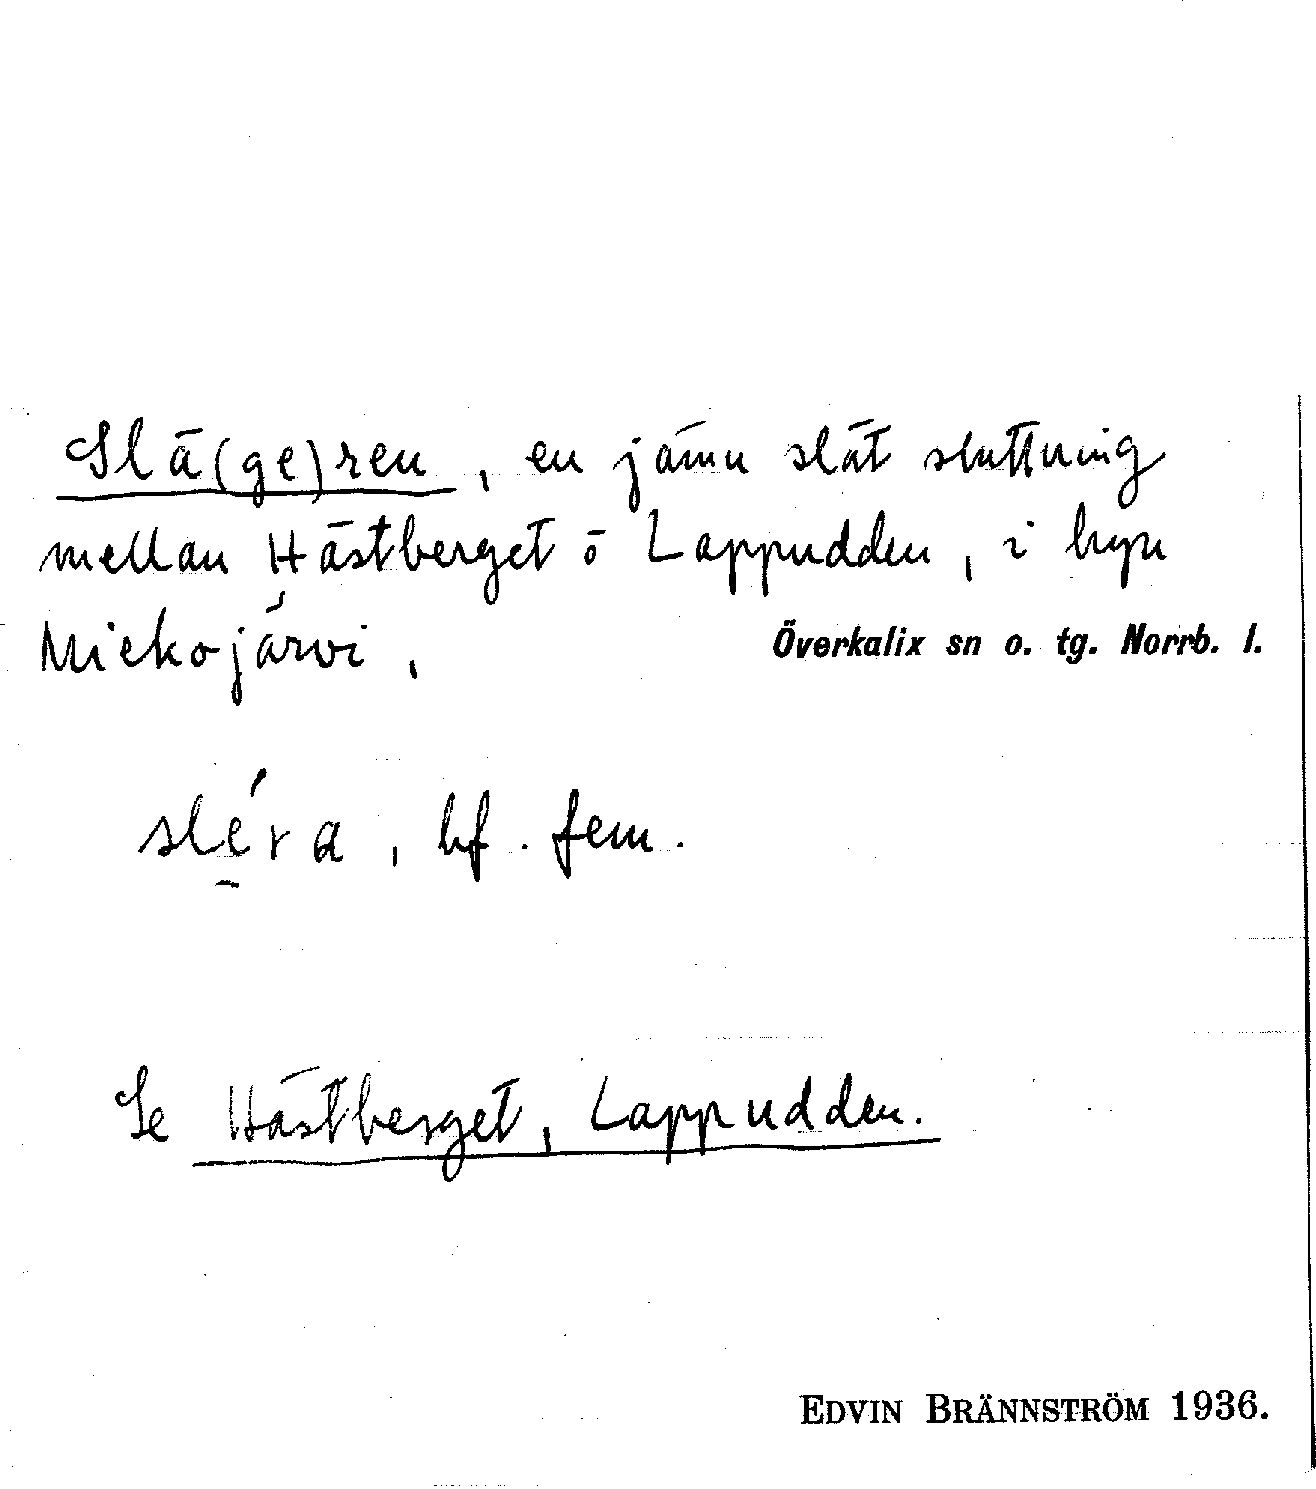 Slä(ge)ren, en jämn slät sluttning
mellan Hästberget ö Lappudden, i byn
Miekojärvi, Överkalix sn o. tg. Norrb. l.
slé̱ra, bf. fem.
Se Hästberget, Lappudden.
EDVIN BRÄNNSTRÖM 1936.